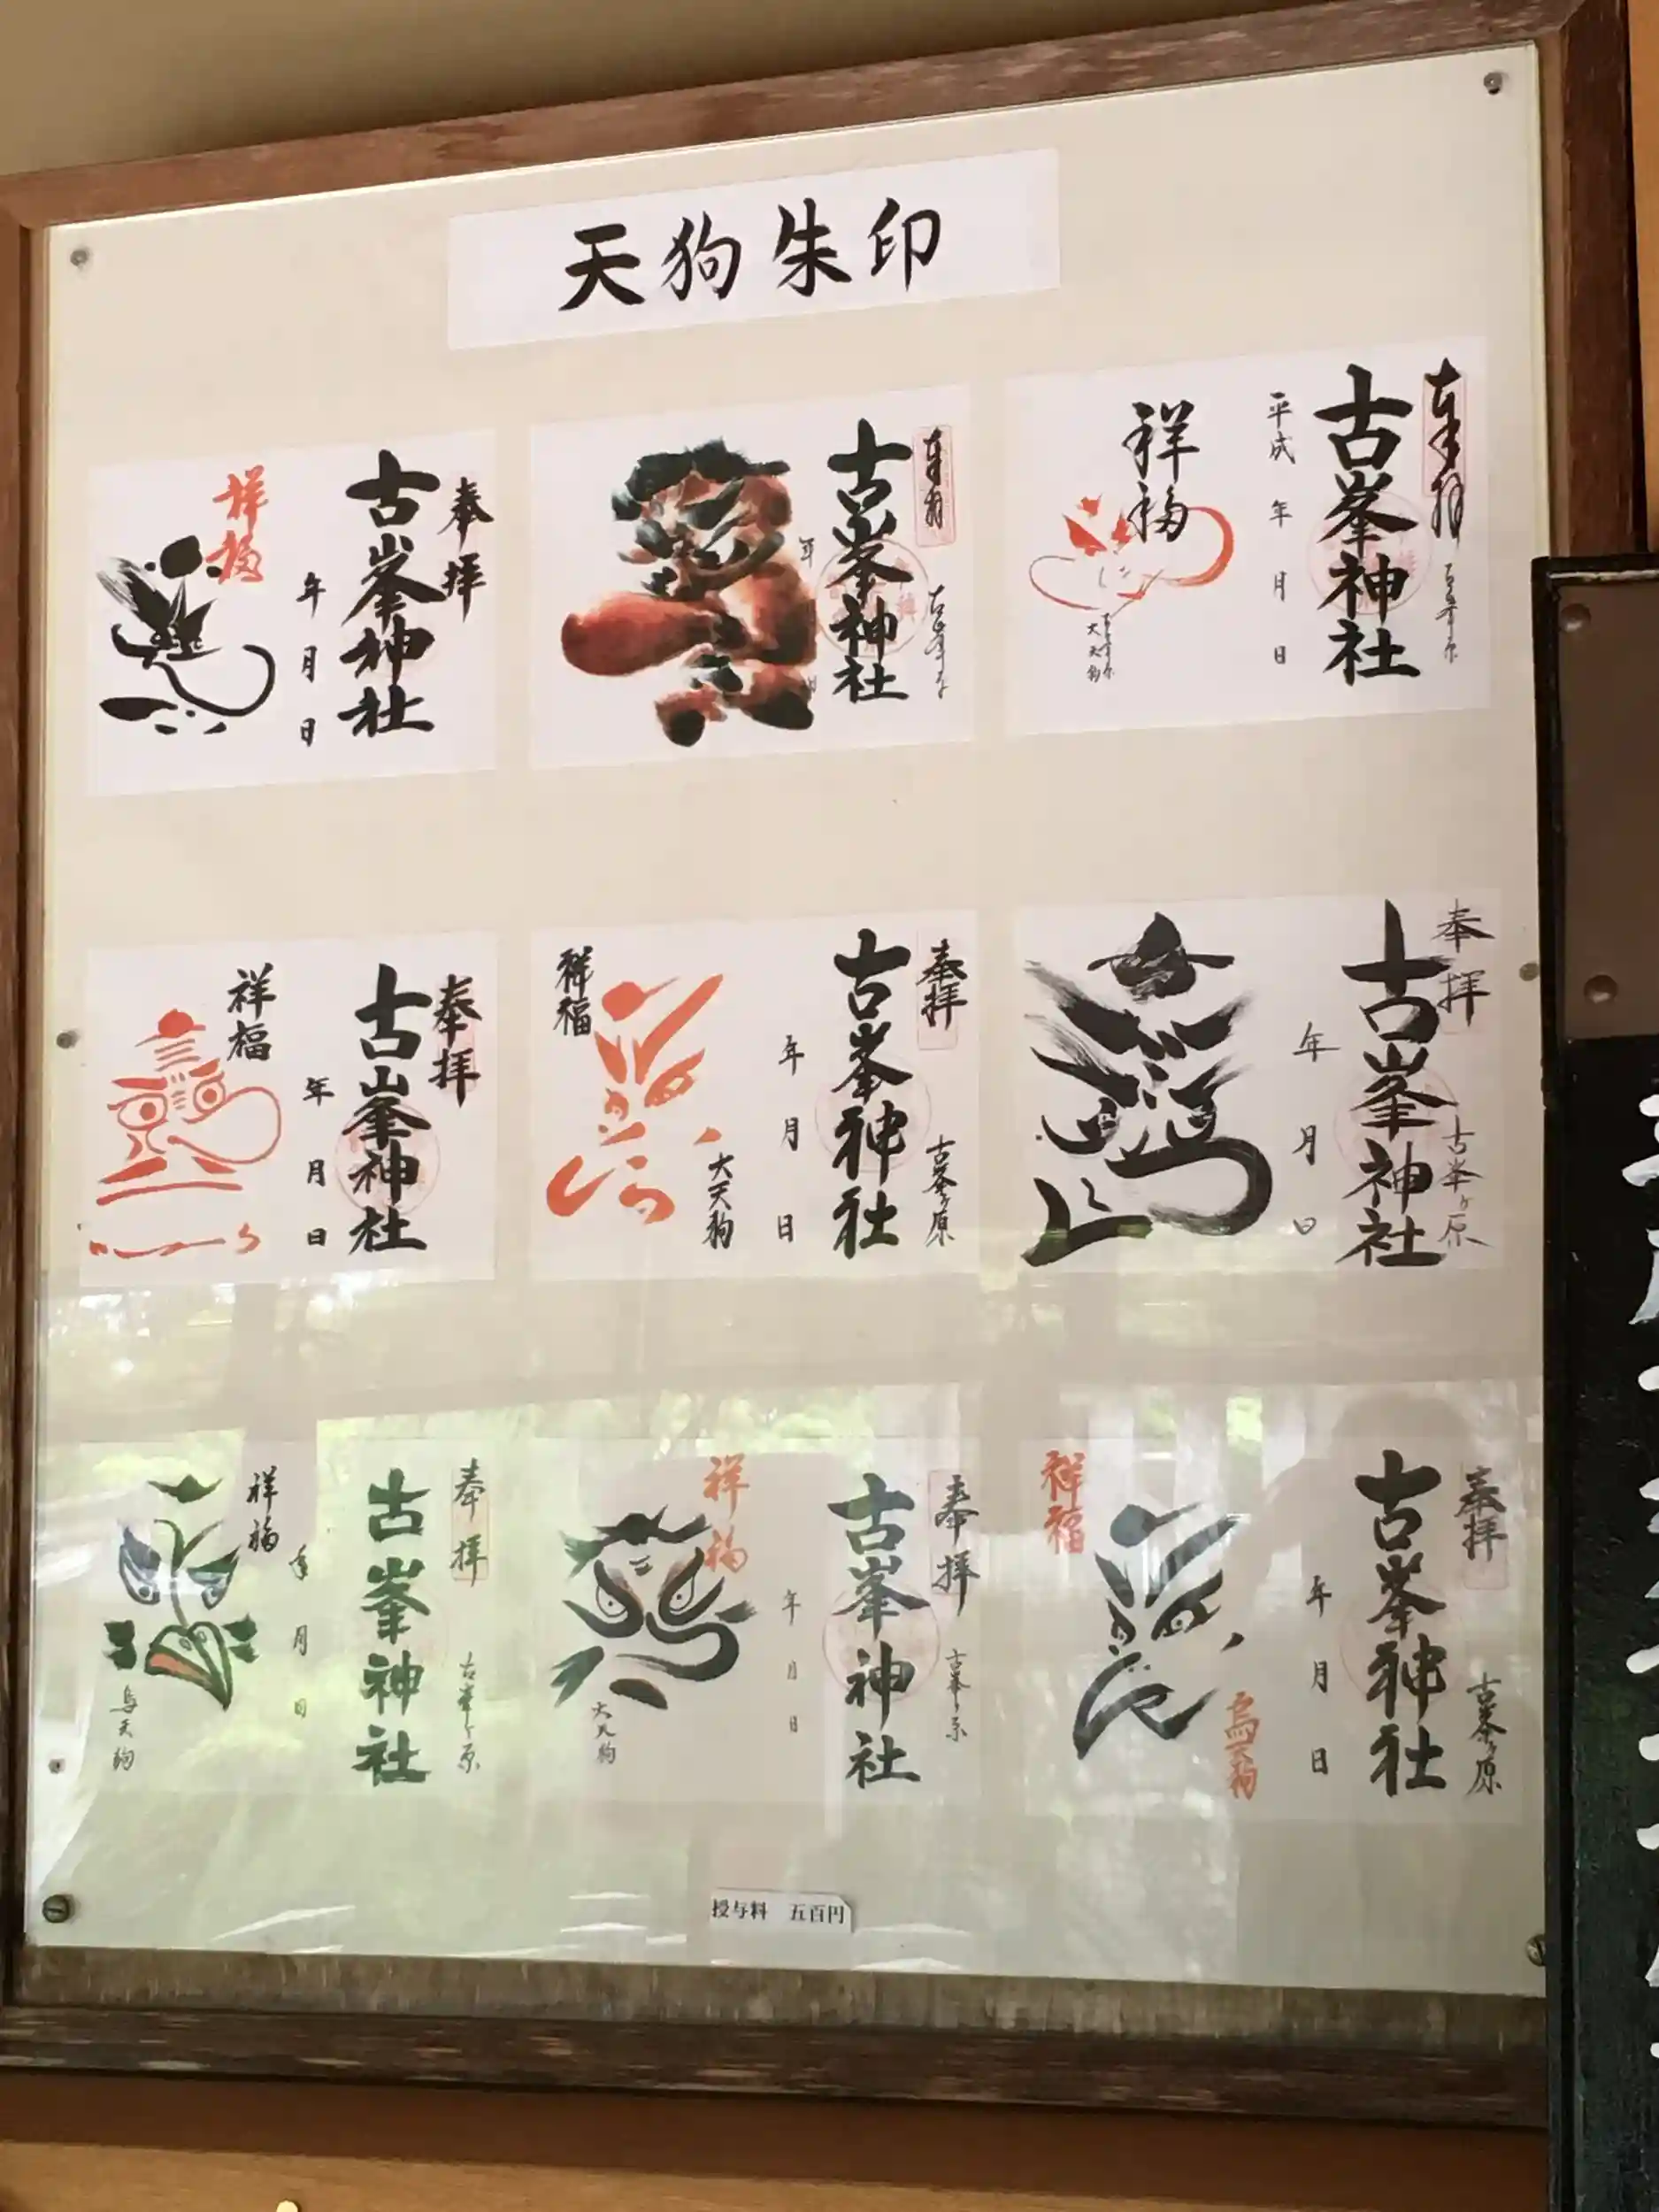 天狗朱印
奉拝
古峯神社
年 月 日
祥福
古峯神社
年
奉拝
古峯神社
平成 年 月 日
祥福
大天狗
奉拝
古峯神社
年 月 日
祥福
奉拝
古峯ヶ原
古峯神社
年 月 日
大天狗
祥福
奉拝
古峯ヶ原
古峯神社
年 月 日
奉拝
古峯ヶ原
古峯神社
年 月 日
祥福
烏天狗
奉拝
古峯ヶ原
古峯神社
年 月 日
祥福
大天狗
奉拝
古峯ヶ原
古峯神社
年 月 日
烏天狗
祥福
授与料 五百円